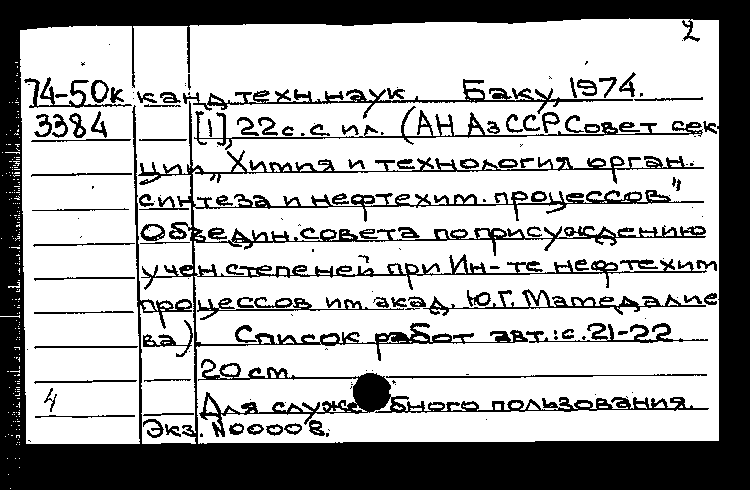 2
74-50к канд.техн.наук. Баку, 1974.
3384 [1], 22с. с ил. (АН АзССР. Совет сек-
ции „Химия и технология орган.
синтеза и нефтехим. процессов"
Объедин. совета по присуждению
учен. степеней при Ин-те нефтехим
процессов им. акад. Ю.Г. Мамедалие
ва). Список работ авт.: с. 21-22.
20 см.
4 Для служебного пользования.
Экз. №00008.